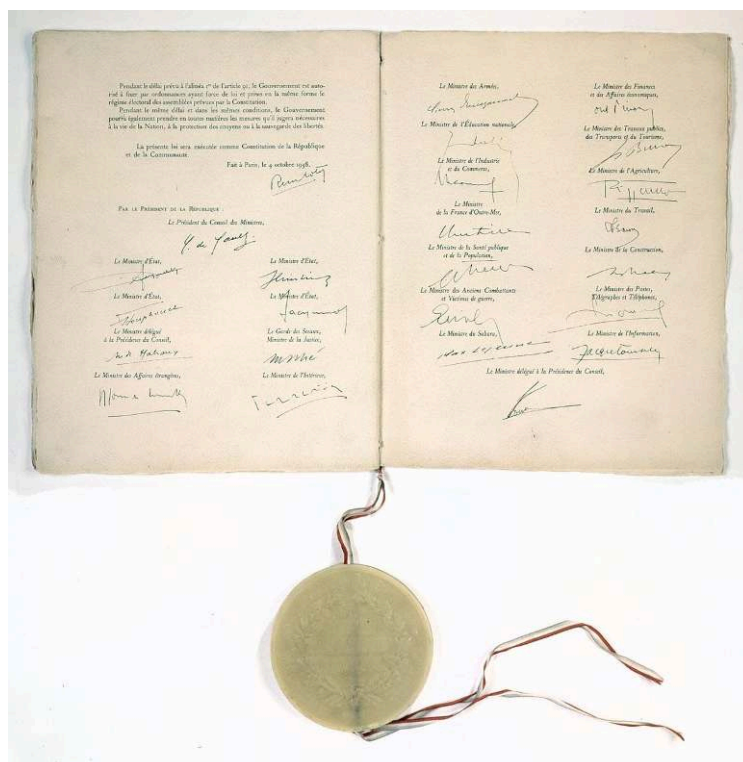 Pendant le délai prévu à l'alinéa 1er de l'article 91, le Gouvernement est auto-
risé à fixer par ordonnances ayant force de loi et prises en la même forme le
régime électoral des assemblées prévues par la Constitution.
Pendant le même délai et dans les mêmes conditions, le Gouvernement
pourra également prendre en toutes matières les mesures qu'il jugera nécessaires
à la vie de la Nation, à la protection des citoyens ou à la sauvegarde des libertés.
La présente loi sera exécutée comme Constitution de la République
et de la Communauté.
Fait à Paris, le 4 octobre 1958.
PAR LE PRÉSIDENT DE LA RÉPUBLIQUE :
Le Président du Conseil des Ministres,
Le Ministre d'État,
Le Ministre d'État,
Le Ministre d'État,
Le Ministre d'État,
Le Ministre délégué
à la Présidence du Conseil,
Le Garde des Sceaux,
Ministre de la Justice,
Le Ministre des Affaires étrangères,
Le Ministre de l'Intérieur,
Le Ministre des Armées,
Le Ministre de l'Éducation nationale,
Le Ministre de l'Industrie
et du Commerce,
Le Ministre
de la France d'Outre-Mer,
Le Ministre de la Santé publique
et de la Population,
Le Ministre des Anciens Combattants
et Victimes de guerre,
Le Ministre du Sahara,
Le Ministre des Finances
et des Affaires économiques,
Le Ministre des Travaux publics,
des Transports et du Tourisme,
Le Ministre de l'Agriculture,
Le Ministre du Travail,
Le Ministre de la Construction,
Le Ministre des Postes,
Télégraphes et Téléphones,
Le Ministre de l'Information,
Le Ministre délégué à la Présidence du Conseil,